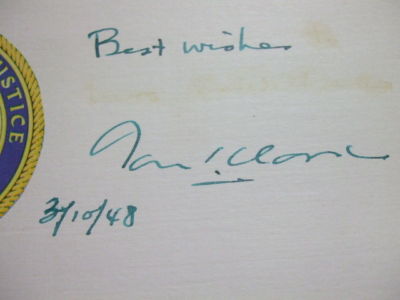 JUSTICE
Best wishes
Tom C Clark
3/10/48